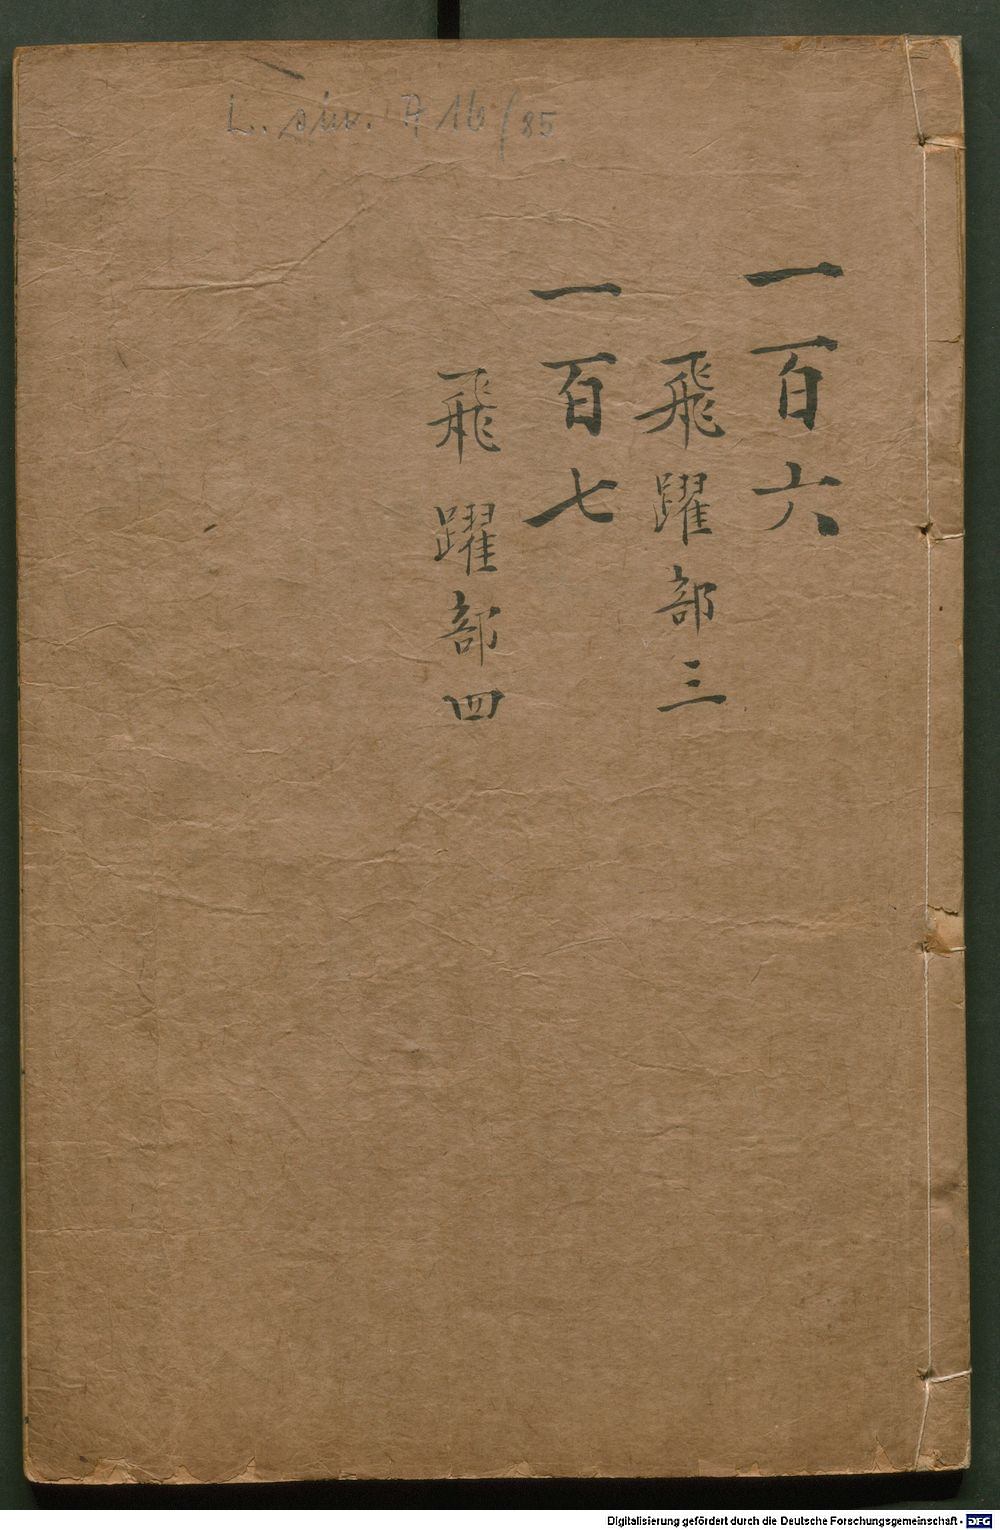 L. sin. A 16/85
一百六
飛躍部三
一百七
飛躍部四
Digitalisierung gefördert durch die Deutsche Forschungsgemeinschaft - DFG